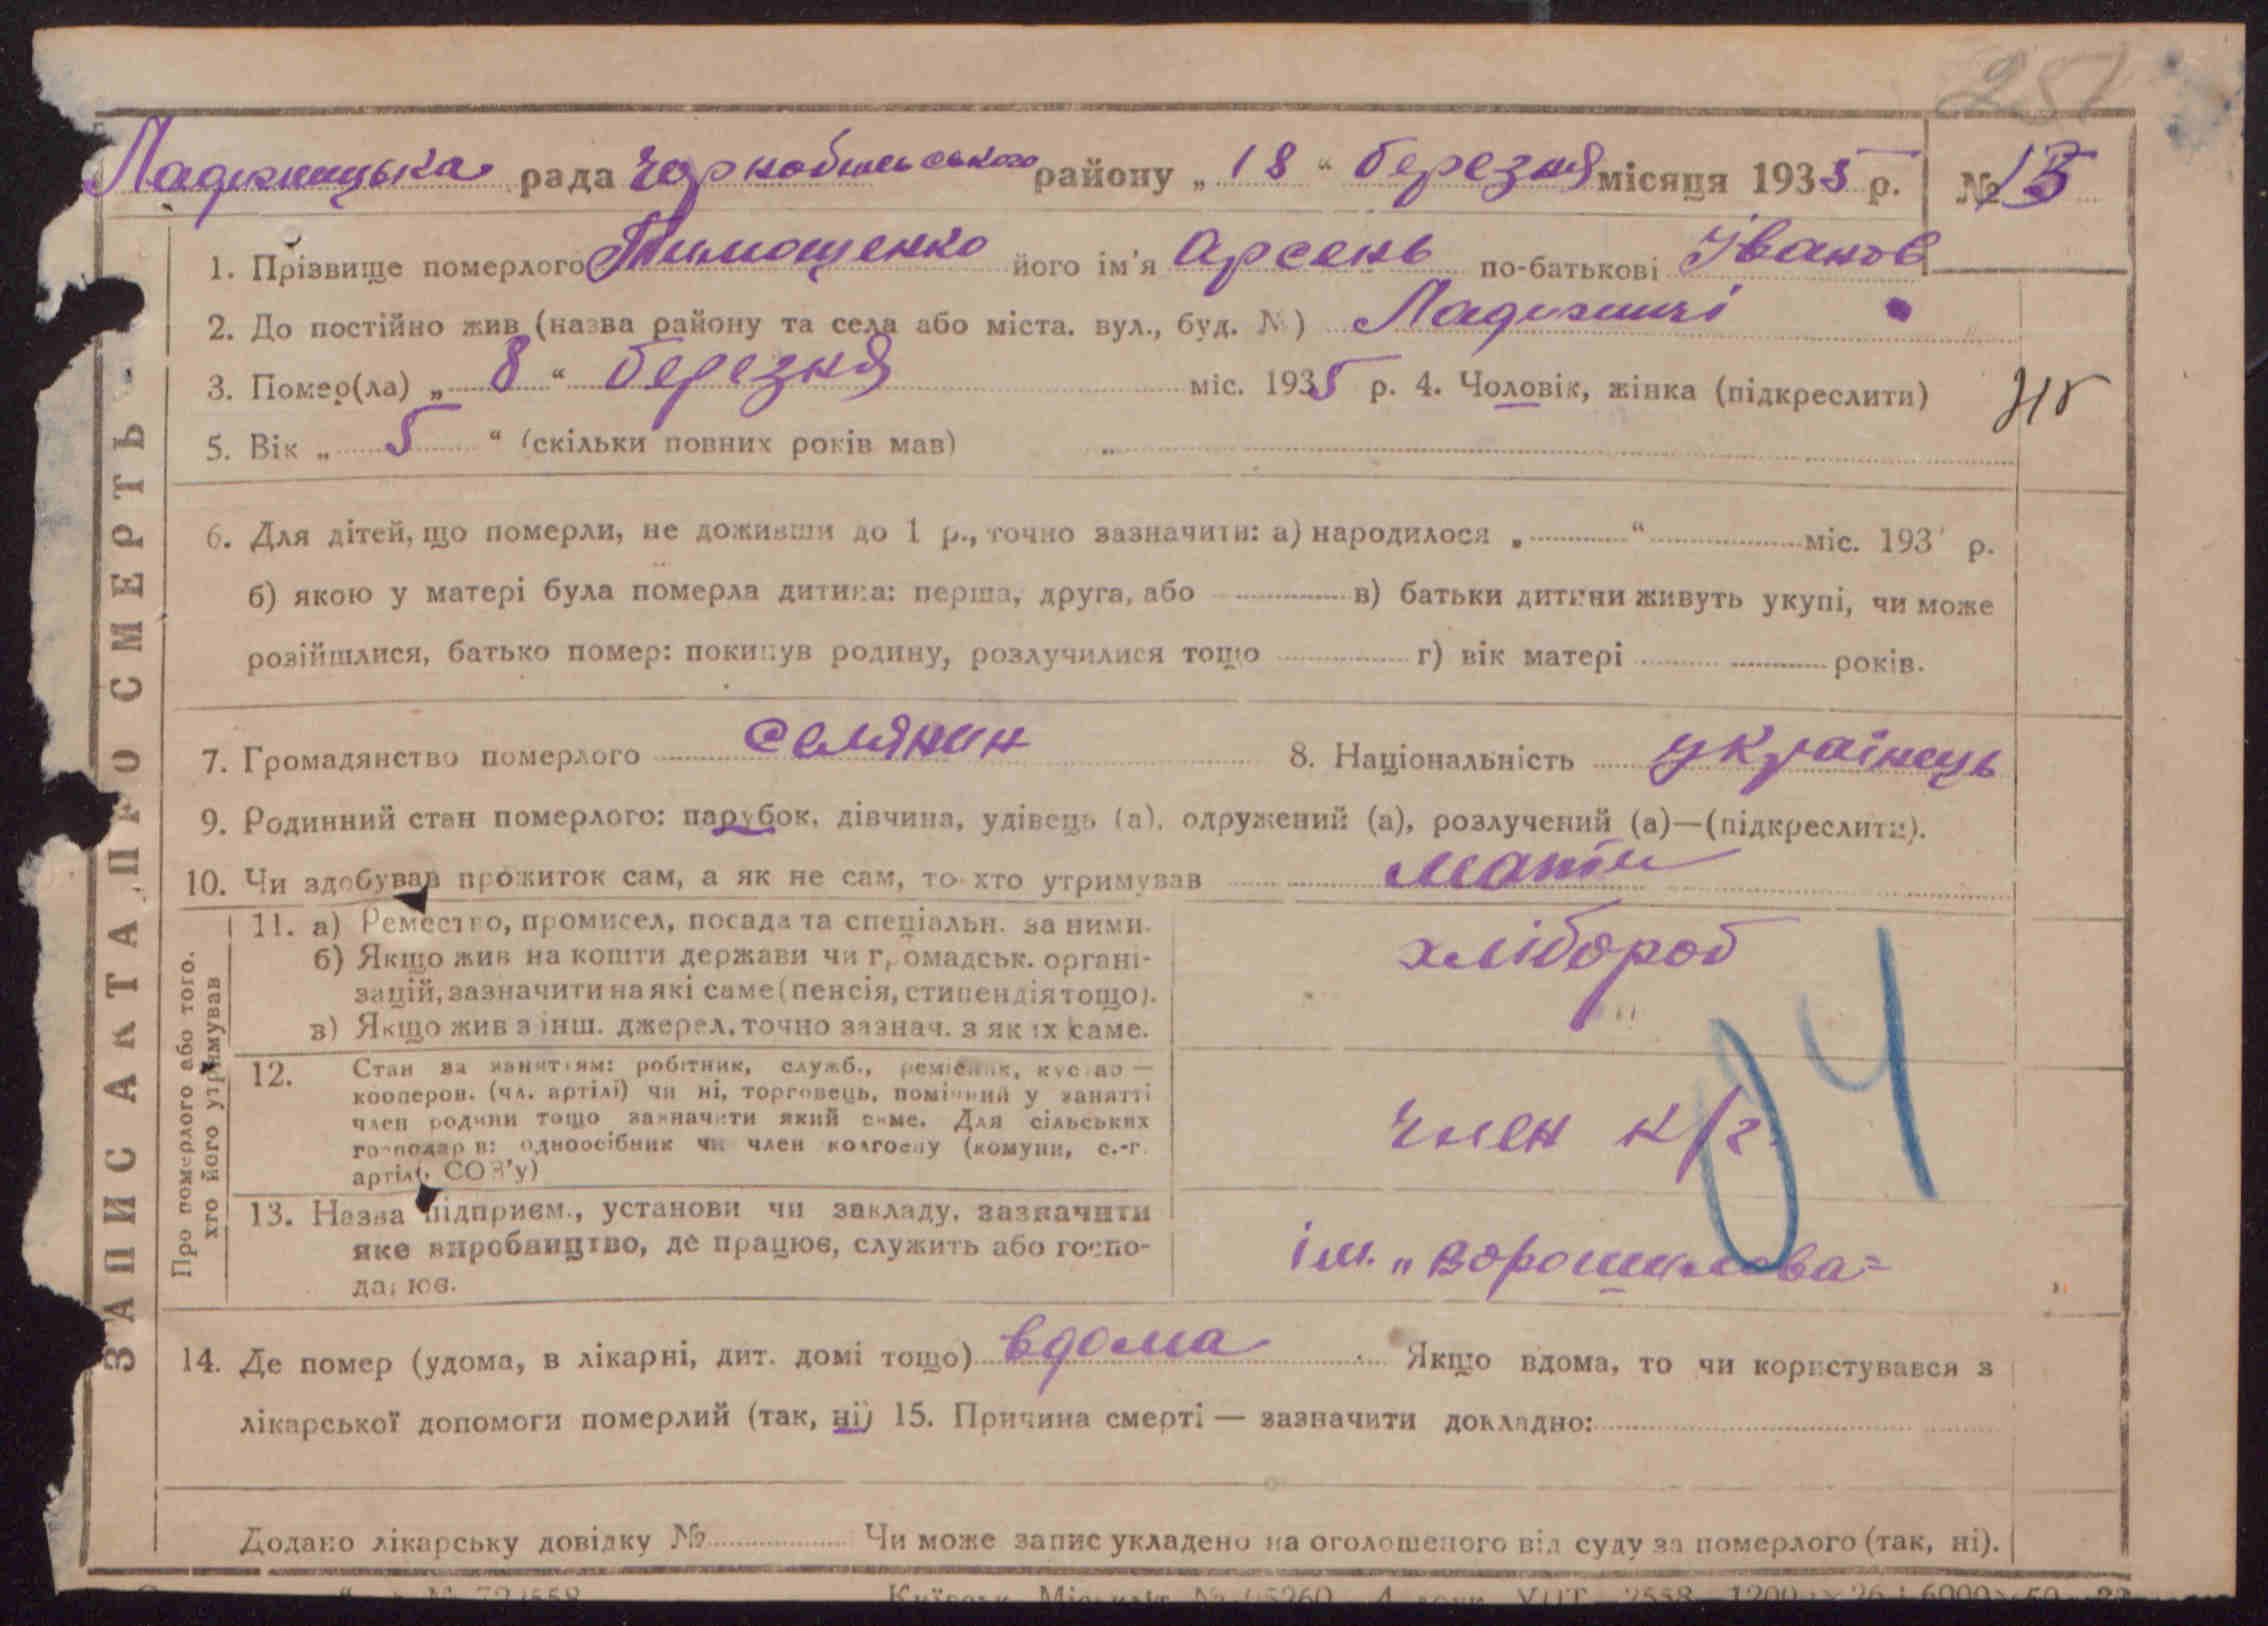 251
Ладижицька рада Чорнобильського району „18“ березня місяця 1935 р. № 13
1. Прізвище померлого Тимощенко його ім'я Арсень по-батькові Іванов
2. До постійно жив (назва району та села або міста. вул., буд. №) Ладижичі
3. Помер(ла) „8“ березня міс. 1935 р. 4. Чоловік, жінка (підкреслити)
5. Вік „5“ (скільки повних років мав) „
6. Для дітей, що померли, не доживши до 1 р., точно зазначити: а) народилося „ “ міс. 193 р.
б) якою у матері була померла дитина: перша, друга, або в) батьки дитини живуть укупі, чи може
розійшлися, батько помер: покинув родину, розлучилися тощо г) вік матері років.
7. Громадянство померлого селянин 8. Національність українець
9. Родинний стан померлого: парубок, дівчина, удівець (а), одружений (а), розлучений (а)—(підкреслити).
10. Чи здобував прожиток сам, а як не сам, то хто утримував мати
11. а) Ремество, промисел, посада та спеціальн. за ними.
б) Якщо жив на кошти держави чи громадськ. органі-
зацій, зазначити на які саме (пенсія, стипендія тощо).
в) Якщо жив з інш. джерел, точно зазнач. з яких саме.
хлібороб
12. Стан за заняттям: робітник, служб., ремісник, кустар —
кооперов. (чл. артілі) чи ні, торговець, помічний у занятті
член родини тощо зазначити який саме. Для сільських
господарів: одноосібник чи член колгоспу (комуни, с.-г.
артілі, СОЗ'у)
член к/г.
13. Назва підприєм., установи чи закладу, зазначити
яке виробництво, де працює, служить або госпо-
дарює.
ім. „Ворошилова“
04
14. Де помер (удома, в лікарні, дит. домі тощо) вдома Якщо вдома, то чи користувався з
лікарської допомоги померлий (так, ні) 15. Причина смерті — зазначити докладно:
Додано лікарську довідку № Чи може запис укладено на оголошеного від суду за померлого (так, ні).
ЗАПИС АКТА ПРО СМЕРТЬ
Про померлого або того.
хто його утримував